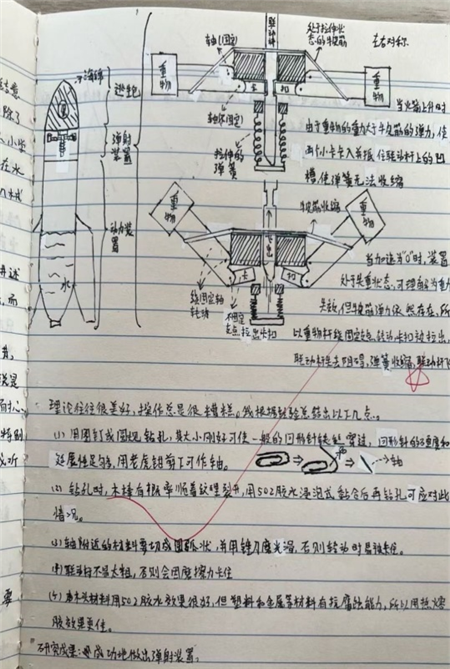 联动杆
处于拉伸状
态的牛皮筋
左右对称
轴(固定)
重物
重物
卡
扣
海绵
逃逸舱
弹射装置
动力装置
水
轴体固定
拉伸的弹簧
当火箭上升时
由于重物的重力大于牛皮筋的弹力,使
两个小卡卡入并抵住联动杆上的凹
槽,使弹簧无法收缩
牛皮筋收缩
重物
重物
卡
扣
当加速为"0"时,装置
处于失重状态,可理解为重力
失效,但牛皮筋弹力依然存在,所
以重物杆绕固定点转动卡扣被拉出,
联动杆失去阻碍,弹簧收缩,联动杆
理论往往很美好,操作总是很糟糕。我根据经验总结出以下几点。
(1)用图钉或圆规钻孔,其大小刚好可使一般的回形针穿过,回形针的硬度和
延展性足够,用老虎钳剪下可作轴。
轴
(2)钻孔时,木棒有很大几率顺着纹理裂开,用502胶水浸泡或黏合后再钻孔可应对此
情况。
(3)轴附近的材料要切成圆弧状,并用锉刀磨光滑,否则转动时易被卡住。
(4)联动杆不易太粗,否则会因摩擦力卡住
木头材料用502胶水效果很好,但塑料和金属等材料有抗腐蚀能力,所以用热熔
胶效果更佳。
研究成果:成功地做出弹射装置。